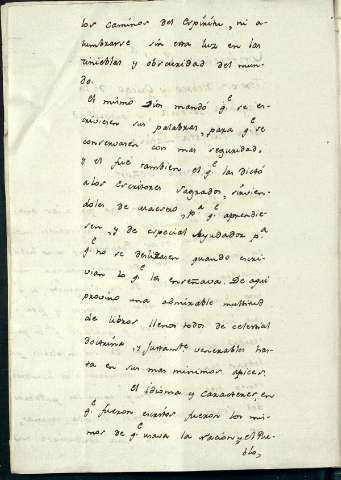 los caminos del Espiritu, ni a-
lumbrarse sin esta luz en las
tinieblas y obscuridad del mun-
do.
El mismo Dios mandó q.e se es-
criviesen sus palabras, para q.e se
conservasen con mas seguridad,
y el fue tambien el q.e las dictó
a los Escritores sagrados, sirvien-
doles de maestro, p.a q.e aprendie-
sen, y de especial Ayudador p.a
q.e no se deslizasen quando escri-
vian lo q.e les enseñava. De aqui
provino una admirable multitud
de libros llenos todos de celestial
doctrina, y juntam.te venerables has-
ta en sus mas minimos apices.
El idioma y caracteres, en
q.e fueron escritos fueron los mis-
mos de q.e usava la Nacion, y el Pue-
blo,